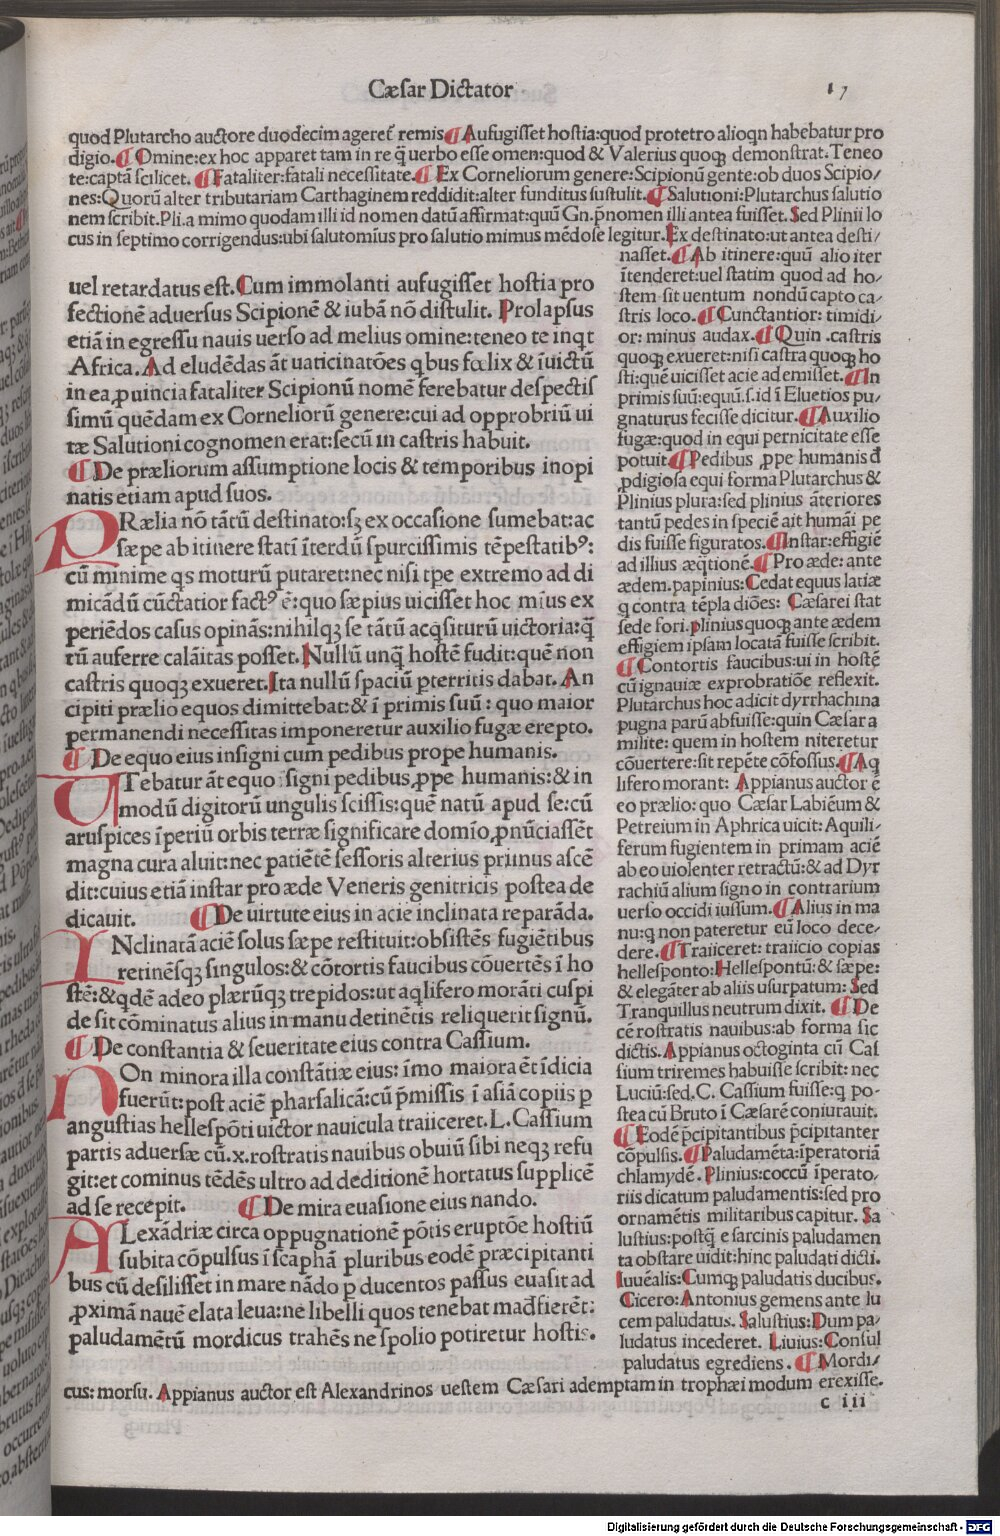 Cæſar Dictator
17
quod Plutarcho auctore duodecim ageret̃ remis ¶ Aufugiſſet hoſtia:quod protetro alioqn habebatur pro
digio. ¶ Omine:ex hoc apparet tam in re q̃ uerbo eſſe omen:quod & Valerius quoqꝫ demonſtrat. Teneo
te:captā ſcilicet. ¶ Fataliter:fatali neceſſitate. ¶ Ex Corneliorum genere:Scipionū gente:ob duos Scipio/
nes:Quorū alter tributariam Carthaginem reddidit:alter funditus ſuſtulit. ¶ Salutioni:Plutarchus ſalutio
nem ſcribit. Pli.a mimo quodam illi id nomen datū affirmat:quū Gn.p̄nomen illi antea fuiſſet. Sed Plinii lo
cus in ſeptimo corrigendus:ubi ſalutomīus pro ſalutio mimus mēdoſe legitur. Ex deſtinato:ut antea deſti/
uel retardatus eſt. Cum immolanti aufugiſſet hoſtia pro
fectionē aduerſus Scipionē & iubā nō diſtulit. Prolapſus
etiā in egreſſu nauis uerſo ad melius omine:teneo te inqt
Africa. Ad eludēdas āt uaticinatōes qbus fœlix & īuictū
in ea ꝓuincia fataliter Scipionū nomē ferebatur deſpectiſ
ſimū quēdam ex Corneliorū genere:cui ad opprobriū ui
tæ Salutioni cognomen erat:ſecū in caſtris habuit.
¶ De præliorum aſſumptione locis & temporibus inopi
natis etiam apud ſuos.
PRælia nō tātū deſtinato:ſꝫ ex occaſione ſumebat:ac
ſæpe ab itinere ſtatī īterdū ſpurciſſimis tēpeſtatibꝰ:
cū minime qs moturū putaret:nec niſi tpe extremo ad di
micādū cūctatior factꝰ ē:quo ſæpius uiciſſet hoc mīus ex
periēdos caſus opināſ:nihilqꝫ ſe tātū acqſiturū uictoria:q̃
tū auferre calāitas poſſet. Nullū unq̃ hoſtē fudit:quē non
caſtris quoqꝫ exueret. Ita nullū ſpaciū ꝑterritis dabat. An
cipiti prælio equos dimittebat:& ī primis ſuū: quo maior
permanendi neceſſitas imponeretur auxilio fugæ erepto.
¶ De equo eius inſigni cum pedibus prope humanis.
UTebatur āt equo īſigni pedibus ꝓpe humanis:& in
modū digitorū ungulis ſciſſis:quē natū apud ſe:cū
aruſpices īperiū orbis terræ ſignificare domīo ꝓnūciaſſēt
magna cura aluit:nec patiētē ſeſſoris alterius primus aſcē
dit:cuius etiā inſtar pro æde Veneris genitricis poſtea de
dicauit. ¶ De uirtute eius in acie inclinata reparāda.
INclinatā aciē ſolus ſæpe reſtituit:obſiſtēs fugiētibus
retinēſqꝫ ſingulos:& cōtortis faucibus cōuertēs ī ho
ſtē:&qdē adeo plærūqꝫ trepidos:ut aqlifero morāti cuſpi
de ſit cōminatus alius in manu detinētis reliquerit ſignū.
¶ De conſtantia & ſeueritate eius contra Caſſium.
NOn minora illa conſtātiæ eius: īmo maiora ēt īdicia
fuerūt:poſt aciē pharſalicā:cū p̄miſſis ī aſiā copiis ꝑ
anguſtias helleſpōti uictor nauicula traiiceret. L. Caſſium
partis aduerſæ cū.x.roſtratis nauibus obuiū ſibi neqꝫ refu
git:et cominus tēdēs ultro ad deditionē hortatus ſupplicē
ad ſe recepit. ¶ De mira euaſione eius nando.
ALexādriæ circa oppugnationē pōtis eruptōe hoſtiū
ſubita cōpulſus ī ſcaphā pluribus eodē præcipitanti
bus cū deſiliſſet in mare nādo ꝑ ducentos paſſus euaſit ad
ꝓximā nauē elata leua:ne libelli quos tenebat madfierēt:
paludamētū mordicus trahēs ne ſpolio potiretur hoſtis.
naſſet. ¶ Ab itinere:quū alio iter
ītenderet:uel ſtatim quod ad ho/
ſtem ſit uentum nondū capto ca/
ſtris loco. ¶ Cunctantior: timidi/
or: minus audax. ¶ Quin .caſtris
quoqꝫ exueret:niſi caſtra quoqꝫ ho
ſti:quē uiciſſet acie ademiſſet. ¶ In
primis ſuū:equū.ſ.id ī Eluetios pu/
gnaturus feciſſe dicitur. ¶ Auxilio
fugæ:quod in equi pernicitate eſſe
potuit. ¶ Pedibus ꝓpe humanis đ
ꝓdigioſa equi forma Plutarchus &
Plinius plura:ſed plinius āteriores
tantū pedes in ſpeciē ait humāi pe
dis fuiſſe figuratos. ¶ Inſtar:effigiē
ad illius æqtionē. ¶ Pro æde: ante
ædem.papinius: Cedat equus latiæ
q contra tēpla diōes: Cæſarei ſtat
ſede fori. plinius quoqꝫ ante ædem
effigiem ipſam locatā fuiſſe ſcribit.
¶ Contortis faucibus:ui in hoſtē
cū ignauiæ exprobratiōe reflexit.
Plutarchus hoc adicit dyrrhachina
pugna parū abfuiſſe:quin Cæſar a
milite: quem in hoſtem niteretur
cōuertere:ſit repēte cōfoſſus. ¶ Aq
lifero morant: Appianus auctor ē
eo prælio: quo Cæſar Labiēum &
Petreium in Aphrica uicit: Aquili/
ferum fugientem in primam aciē
ab eo uiolenter retractū:& ad Dyr
rachiū alium ſigno in contrarium
uerſo occidi iuſſum. ¶ Alius in ma
nu:q non pateretur eū loco dece/
dere. ¶ Traiiceret: traiicio copias
helleſponto: Helleſpontū:& ſæpe:
& elegāter ab aliis uſurpatum: Sed
Tranquillus neutrum dixit. ¶ De
cē roſtratis nauibus:ab forma ſic
dictis. Appianus octoginta cū Caſ
ſium triremes habuiſſe ſcribit: nec
Luciū:ſed.C. Caſſium fuiſſe:q po-
ſtea cū Bruto ī Cæſarē coniurauit.
¶ Eodē p̄cipitantibus p̄cipitanter
cōpulſis. ¶ Paludamēta:īperatoriā
chlamydē. Plinius:coccū īperato/
riis dicatum paludamentis:ſed pro
ornamētis militaribus capitur. Sa
luſtius:poſtq̃ e ſarcinis paludamen
ta obſtare uidit:hinc paludati dicti.
Iuuēalis: Cumqꝫ paludatis ducibus.
Cicero: Antonius gemens ante lu
cem paludatus. Saluſtius: Dum pa/
ludatus incederet. Liuius: Conſul
paludatus egrediens. ¶ Mordi/
cus: morſu. Appianus auctor eſt Alexandrinos ueſtem Cæſari ademptam in trophæi modum erexiſſe.
c iii
Digitalisierung gefördert durch die Deutsche Forschungsgemeinschaft - DFG